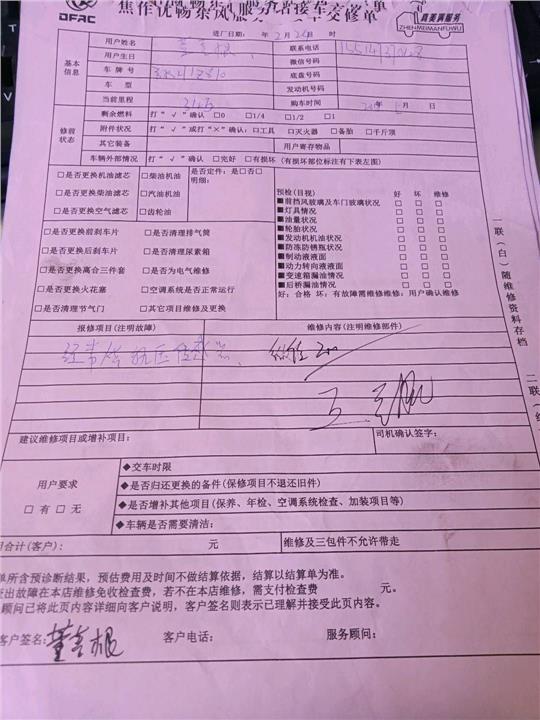 焦作优畅东风服务站接车交修单
DFAC
真美满服务
ZHEN MEI MAN FU WU
进厂日期: 年 2 月 24 日
基本信息
用户姓名 董喜根 联系电话
用户生日 微信号码
车牌号 底盘号码
车 型 发动机号码
当前里程 购车时间 年 月 日
修前状态
剩余燃料 打“√”确认 □0 □1/4 □1/2 □1
附件状况 打“√”或打“×”确认:□工具 □灭火器 □备胎 □千斤顶
其它装备 用户寄存物品
车辆外部情况 打“√”确认 □完好 □有损坏 (有损坏部位标注有下表左图)
□是否更换机油滤芯 □柴油机油 是否定件:是□否□
明细:
□是否更换柴油滤芯 □汽油机油
□是否更换空气滤芯 □齿轮油
□是否更换前刹车片 □是否清理排气筒
□是否更换后刹车片 □是否清理尿素箱
□是否更换离合三件套 □是否为电气维修
□是否更换火花塞 □空调系统是否正常运行
□是否清理节气门 □其它项目维修及更换
预检(目视) 好 坏 维修
■前挡风玻璃及车门玻璃状况 □ □ □
■灯具情况 □ □ □
■油量状况 □ □ □
■轮胎状况 □ □ □
■发动机机油状况 □ □ □
■防冻防锈瓶状况 □ □ □
■制动液液面 □ □ □
■动力转向液液面 □ □ □
■变速箱漏油情况 □ □ □
■后桥漏油情况 □ □ □
好:合格 坏:有故障需维修维修:用户确认维修
报修项目(注明故障) 维修内容(注明维修部件)
建议维修项目或增补项目: 司机确认签字:
用户要求
□ 有 □ 无
◆交车时限
◆是否归还更换的备件(保修项目不退还旧件)
◆是否增补其他项目(保养、年检、空调系统检查、加装项目等)
◆车辆是否需要清洁:
用合计(客户): 元 维修及三包件不允许带走
单所含预诊断结果,预估费用及时间不做结算依据,结算以结算单为准。
查出故障在本店维修免收检查费,若不在本店维修,需支付检查费 元。
顾问已将此页内容详细向客户说明,客户签名则表示已理解并接受此页内容。
客户签名:董喜根 客户电话: 服务顾问:
一联(白)随维修资料存档
二联(